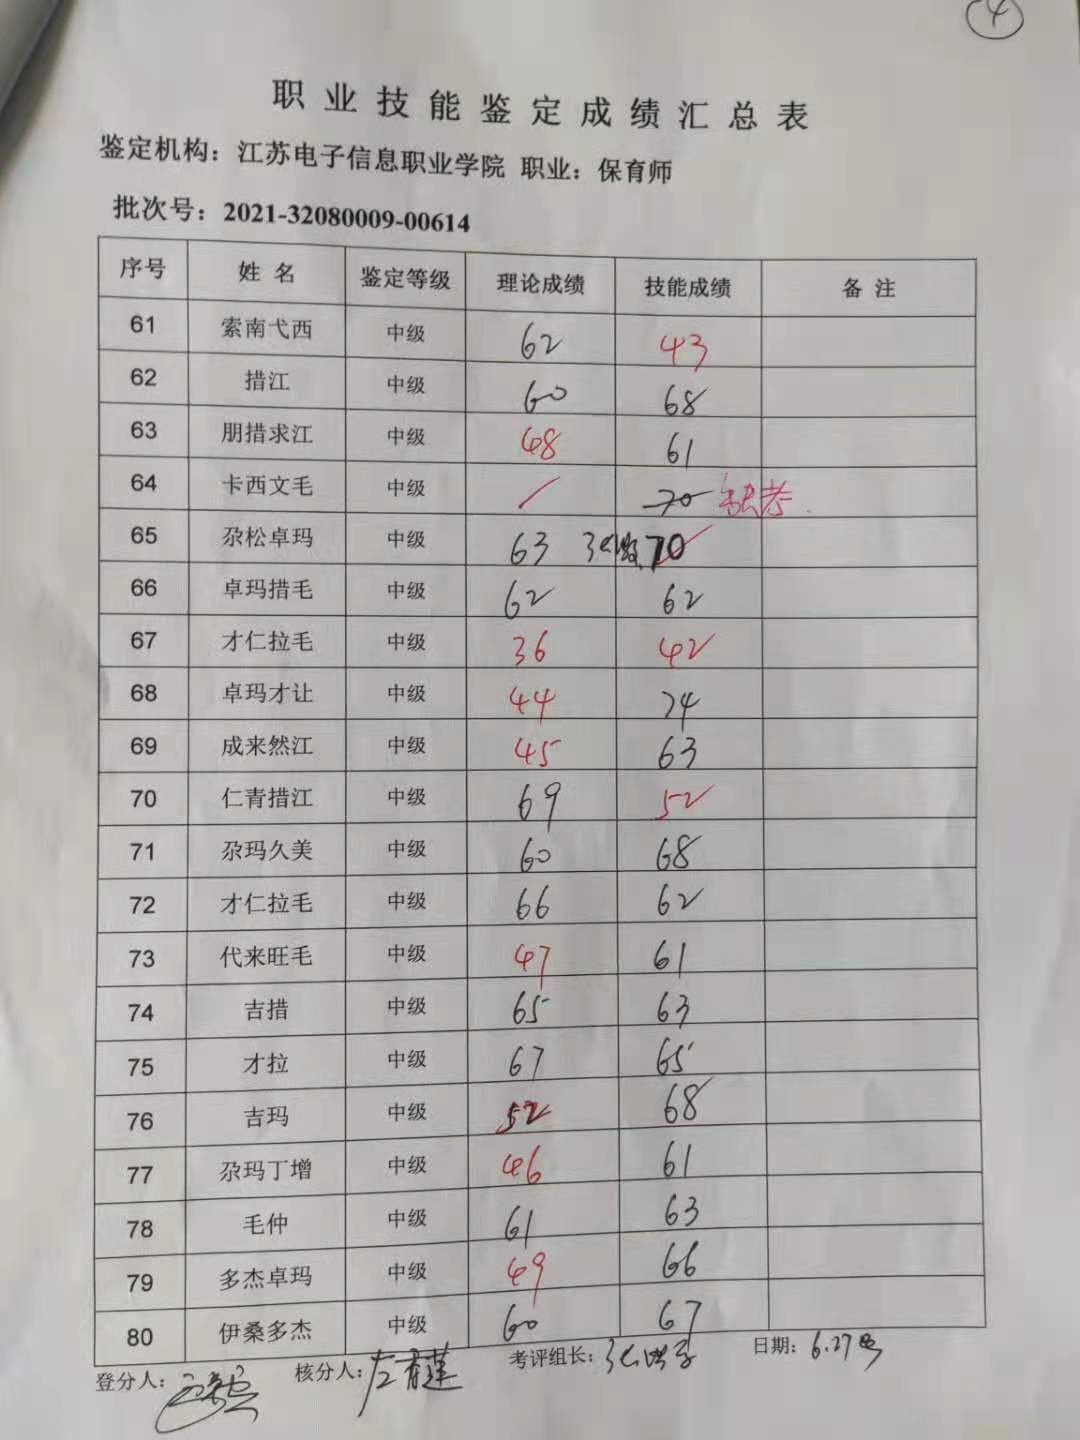 4
职业技能鉴定成绩汇总表
鉴定机构：江苏电子信息职业学院 职业：保育师
批次号：2021-32080009-00614
序号 姓名 鉴定等级 理论成绩 技能成绩 备注
61 索南弋西 中级 62 43
62 措江 中级 60 68
63 朋措求江 中级 48 61
64 卡西文毛 中级 / 70 缺考
65 尕松卓玛 中级 63 70
66 卓玛措毛 中级 62 62
67 才仁拉毛 中级 36 42
68 卓玛才让 中级 44 74
69 成来然江 中级 45 63
70 仁青措江 中级 69 52
71 尕玛久美 中级 60 68
72 才仁拉毛 中级 66 62
73 代来旺毛 中级 47 61
74 吉措 中级 65 63
75 才拉 中级 67 65
76 吉玛 中级 52 68
77 尕玛丁增 中级 46 61
78 毛仲 中级 61 63
79 多杰卓玛 中级 49 66
80 伊桑多杰 中级 60 67
登分人： 核分人：左青莲 考评组长： 日期：6.27号